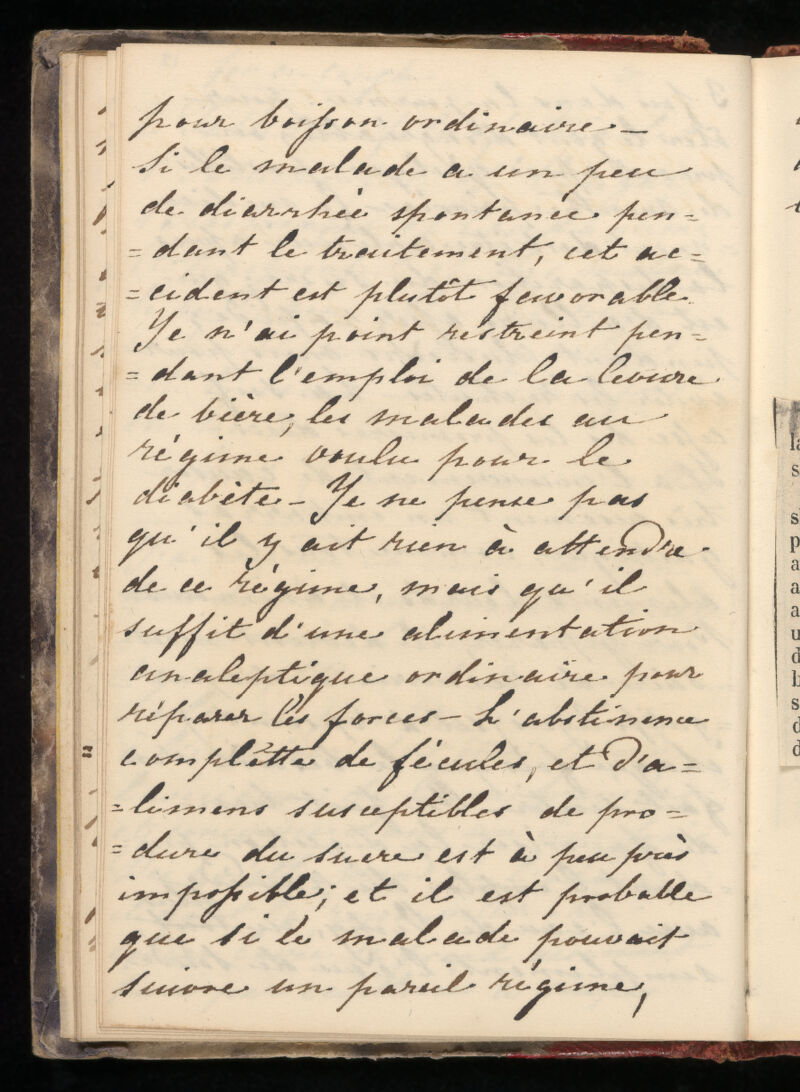 pour boisson ordinaire —
Si le malade a un peu
de diarrhée spontanée pen=
=dant le traitement, cet ac=
=cident est plutôt favorable.
Je n'ai point restreint pen=
=dant l'emploi de la levure
de bière, les malades au
régime voulu pour le
diabète — Je ne pense pas
qu'il y ait rien à attendre
de ce régime, mais qu'il
suffit d'une alimentation
analeptique ordinaire pour
réparer les forces — L'abstinence
complètte de fécules, et d'a=
=limens susceptibles de pro=
=duire du sucre est à peu près
impossible; et il est probable
que si le malade pouvait
suivre un pareil régime,
la
s
s
p
a
a
a
u
d
l
s
d
d